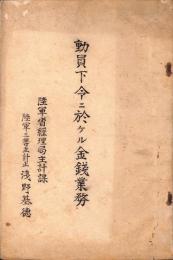 動員下令ニ於ケル金錢業務
陸軍省經理局主計課
陸軍三等主計正 淺野基德